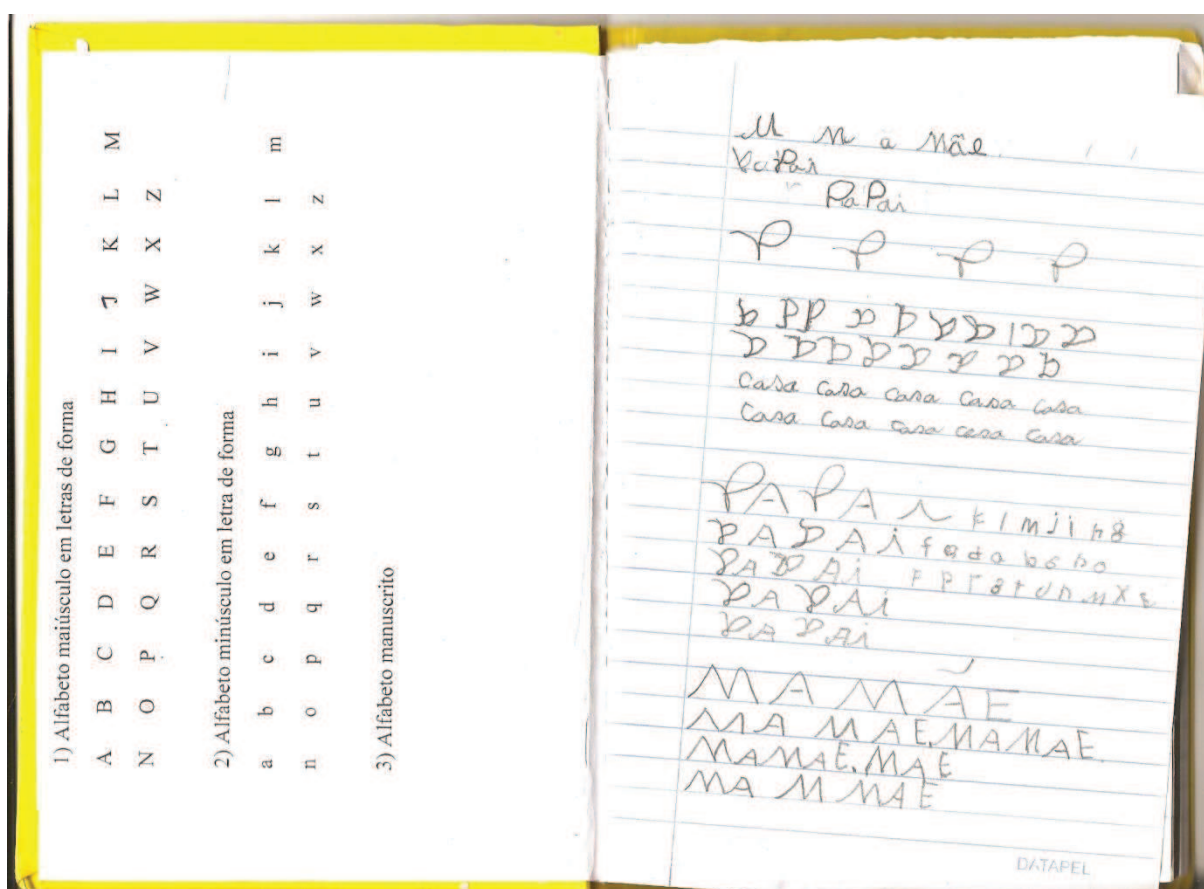 1) Alfabeto maiúsculo em letras de forma
A B C D E F G H I J K L M
N O P Q R S T U V W X Z
2) Alfabeto minúsculo em letra de forma
a b c d e f g h i j k l m
n o p q r s t u v w x z
3) Alfabeto manuscrito
M n a mãe
PaPai
PaPai
P P P P
casa casa casa casa casa
casa casa casa casa casa
PAPAi
PAPAi
PAPAi
PAPAi
PAPAi
MAMÃE
MA MAE, MAMAE.
MAMAE, MAE
MA M MAE
DATAPEL